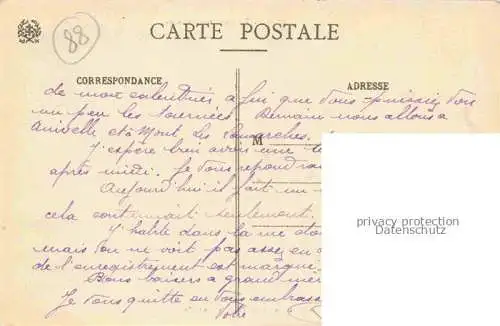 88
CARTE POSTALE
CORRESPONDANCE
ADRESSE
de mox calentriés a fin que vous puissiez
un peu les tournées. Demain nous allons à
Ainvelle et à Mont les Lamarches.
M
J'espère bien avoir une
après midi. Je vous répondrai
Aujourd'hui il fait un
cela continuait seulement
J'habite dans la rue
mais on ne voit pas assez, en
de l'enregistrement est marqué
Bons baisers à grand mère
Je vous quitte en vous embrass
Votre
privacy protection
Datenschutz